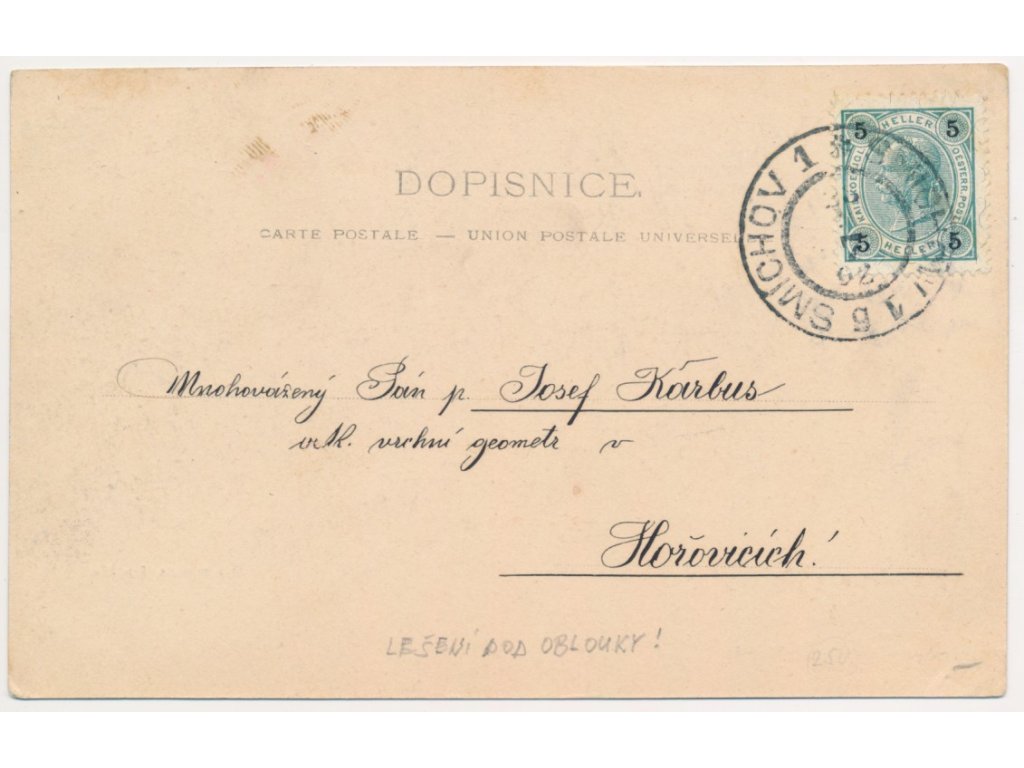 DOPISNICE.
CARTE POSTALE — UNION POSTALE UNIVERSEL
5 HELLER 5
OESTERR. POST
5 HELLER 5
SMÍCHOV 1
Mnohovážený Pán p. Josef Kárbus
c. k. vrchní geometr v
Hořovicích!
LEŠENÍ POD OBLOUKY!